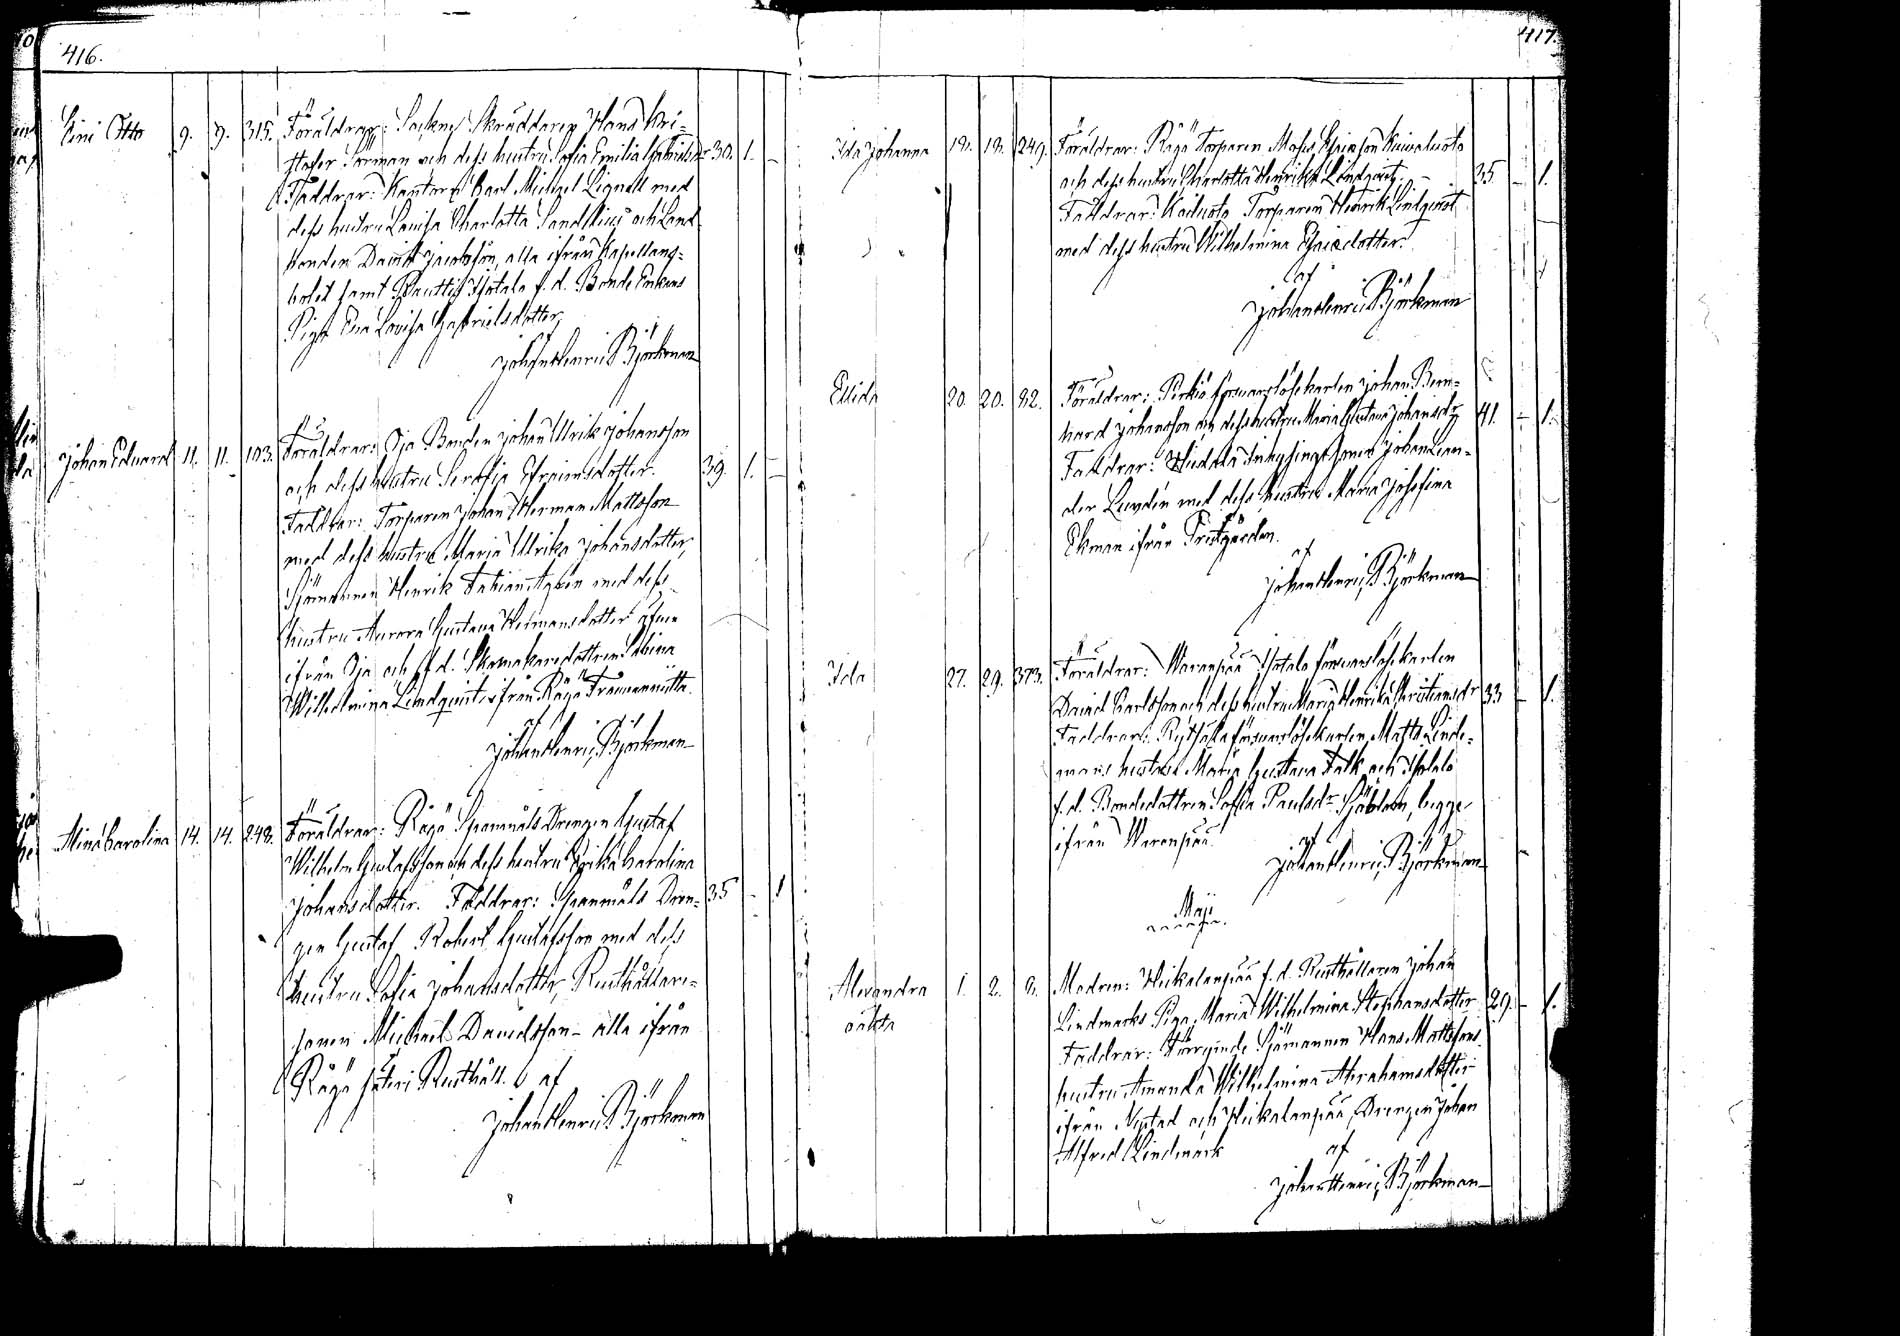 416.
Eini Otto 9. 9. 315. Föräldrar: Sockne Skräddaren Hans Kri=
stofer Sörman och dess hustru Sofia Emilia Gabrielsdr 30. 1. –
Faddrar: Kantorn Carl Michael Lignell med
dess hustru Lovisa Charlotta Sandelius och Land
bonden David Jacobsson, alla ifrån Kapellans=
bolet samt Isotalo f. d. Bonde Enkans
Piga Eva Lovisa Gabrielsdotter,
af
Johan Henric Björkman
Johan Eduard 11. 11. 103. Föräldrar: Oja Bonden Johan Ulrik Johansson
och dess hustru Serafia Efraimsdotter. 39. 1. –
Faddrar: Torparen Johan Herman Mattsson
med dess hustru Maria Ulrika Johansdotter,
Sjömannen Henrik Fabian med dess
hustru Aurora Gustava Hermansdotter äfven
ifrån Oja och f. d. Skomakaredottren Sabina
Wilhelmina Lindquist ifrån Rägö
af
Johan Henric Björkman
Mina Carolina 14. 14. 248. Föräldrar: Rägö Spanmåls Drengen Gustaf
Wilhelm Gustafsson och dess hustru Erika Carolina
Johansdotter. Faddrar: Spanmåls Dren= 35 – 1
gen Gustaf Robert Gustafsson med dess
hustru Sofia Johansdotter, Rusthållare=
sonen Michael Davidsson – alla ifrån
Rägö Säteri Rusthåll. af
Johan Henric Björkman
417.
Ida Johanna 18. 18. 249. Föräldrar: Rägö Torparen Moses Esaiasson Kuivaluoto
och dess hustru Charlotta Henrika Lindqvist. 35 – 1.
Faddrar: Torparen Henrik Lindqvist
med dess hustru Wilhelmina Esaiedotter.
af
Johan Henric Björkman
Ellida 20. 20. 82. Föräldrar: Pirkiö försvarslösekarlen Johan Bern=
hard Johansson och dess hustru Maria Gustava Johansdr 41. – 1.
Faddrar: Johan Lean=
der Lundén med dess hustru Maria Josefina
Ekman ifrån Prestgården.
af
Johan Henric Björkman
Ida 27. 29. 373. Föräldrar: Waranpää Isotalo försvarslösekarlen
David Karlsson och dess hustru Maria Henrika Christiansdr 33 – 1.
Faddrar: försvarslösekarlen Matts Linde=
mans hustru Maria Gustava Falk och Isotalo
f. d. Bondedottren Sofia Paulsdr Sjöblom, begge
ifrån Waranpää.
af
Johan Henric Björkman
Maji
Alexandra 1. 2. 8. Modren: Heikolanpää f. d. Rusthållaren Johan
oäkta Lindmarks Piga Maria Wilhelmina Stephansdotter 29. – 1.
Faddrar: Sjömannen Hans Mattssons
hustru Amanda Wilhelmina Abrahamsdotter
ifrån Nystad och Heikolanpää, Drengen Johan
Alfred Lindmark af
Johan Henric Björkman